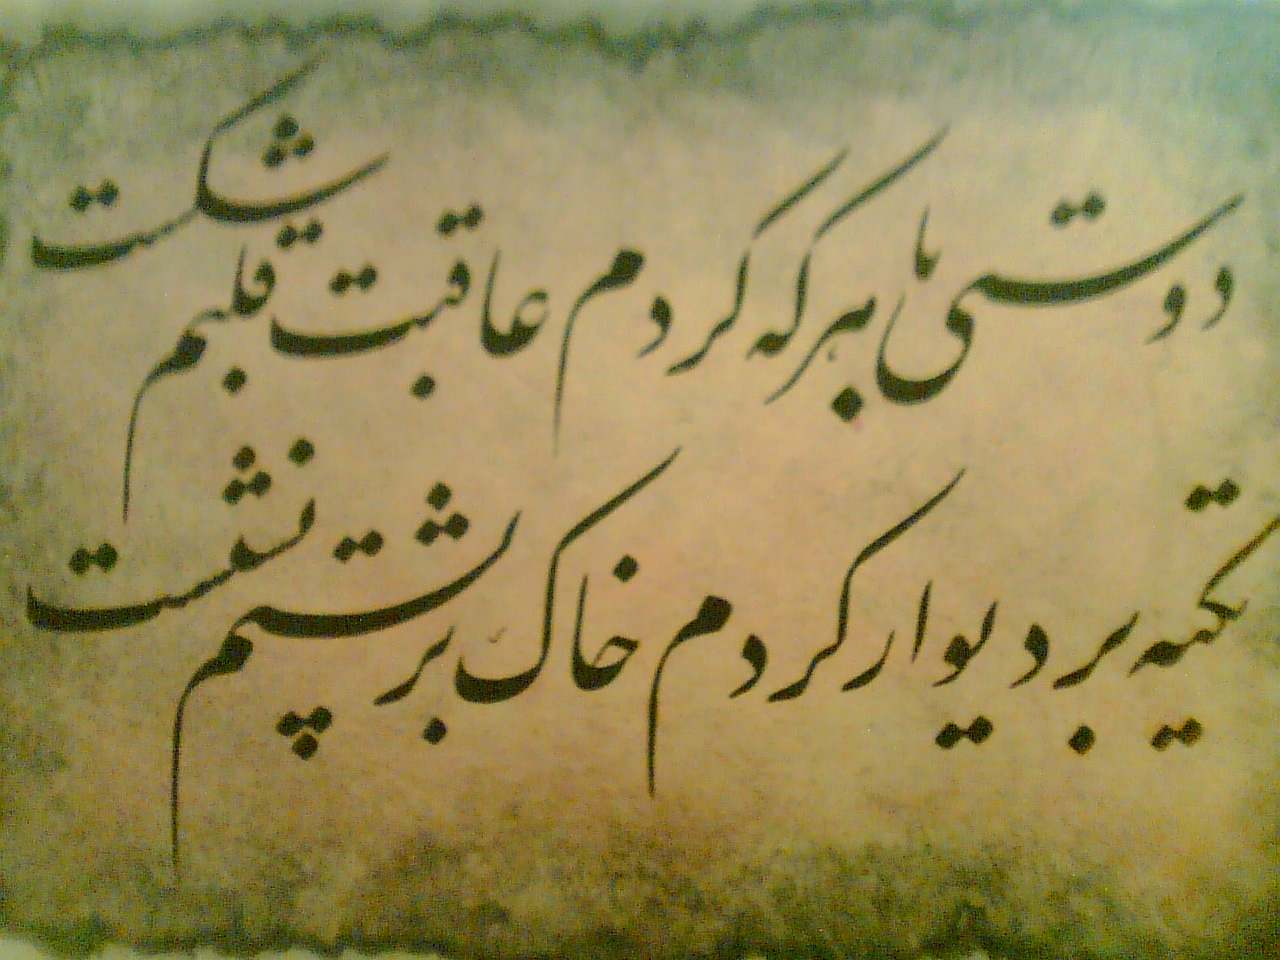 دوستی با هر که کردم عاقبت قلبم شکست
تکیه بر دیوار کردم خاک بر پشتم نشست